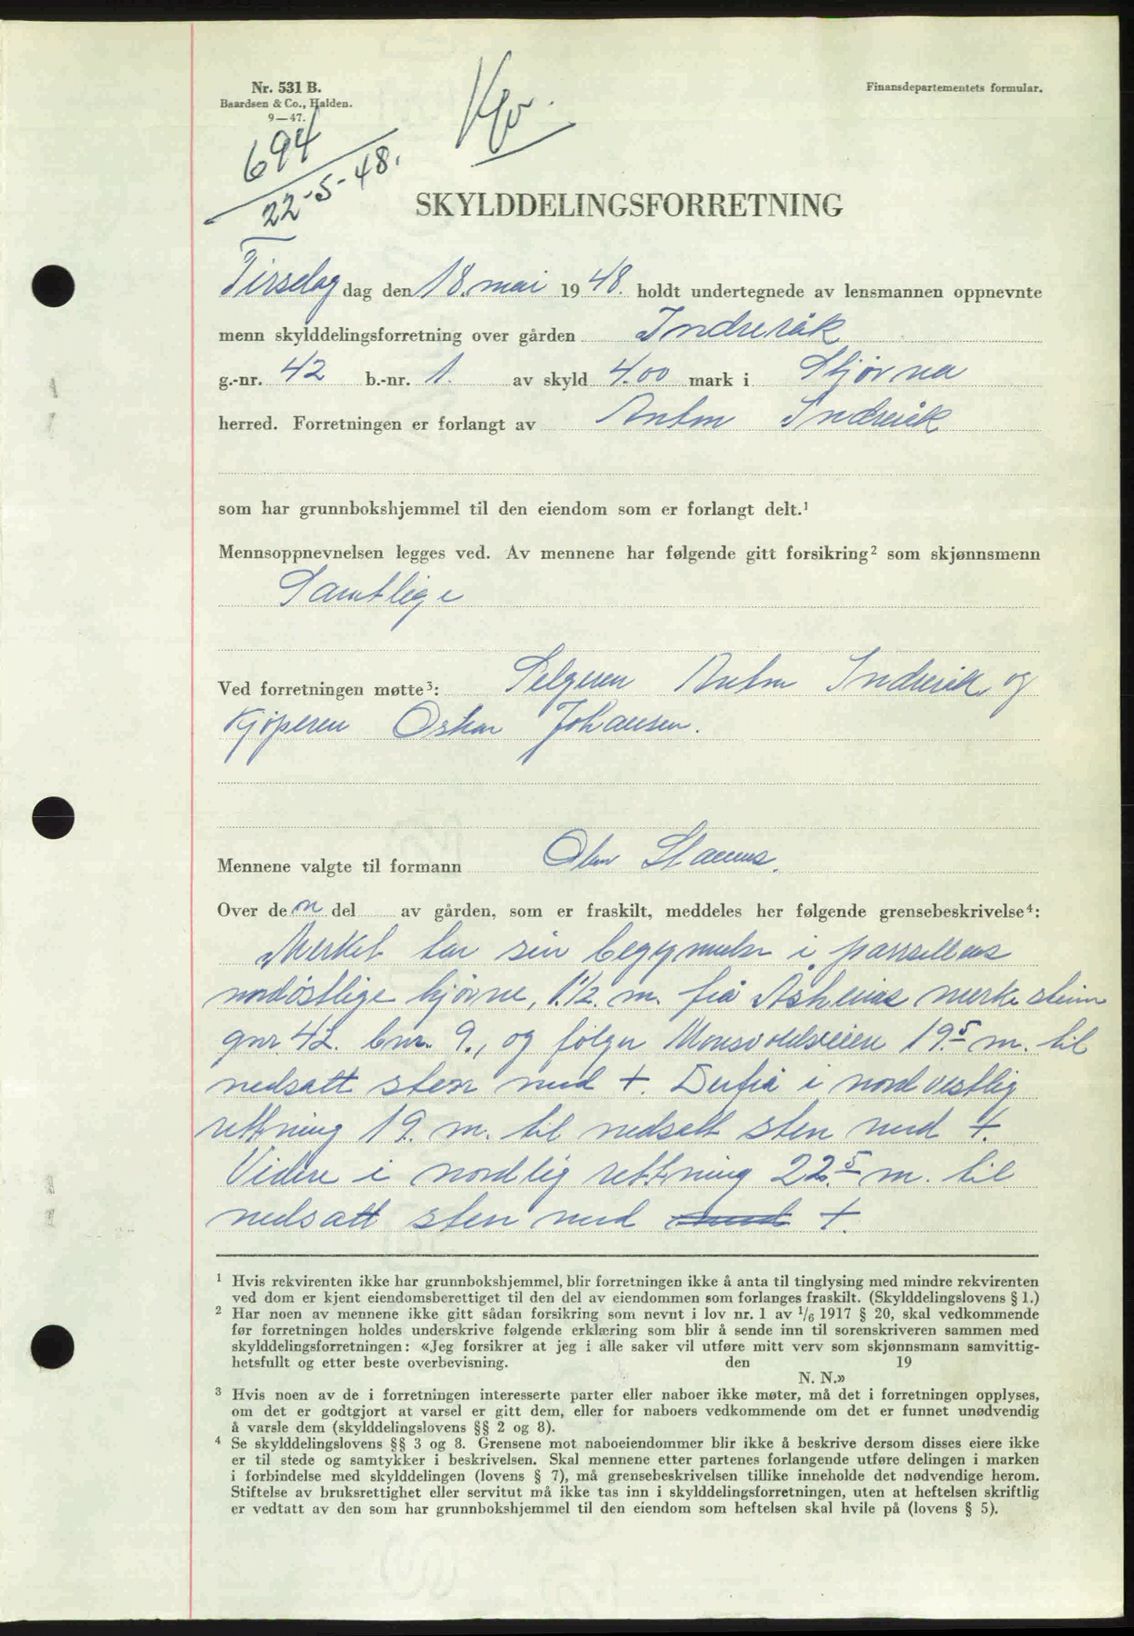 Nr. 531 B.
Baardsen & Co., Halden.
9—47.
Finansdepartementets formular.
694
22-5-48.
SKYLDDELINGSFORRETNING
Tirsdag dag den 18. mai 1948. holdt undertegnede av lensmannen oppnevnte
menn skylddelingsforretning over gården Indreråk
g.-nr. 42 b.-nr. 1. av skyld 4.00 mark i Stjørna
herred. Forretningen er forlangt av Anton Indreråk
som har grunnbokshjemmel til den eiendom som er forlangt delt.¹
Mennsoppnevnelsen legges ved. Av mennene har følgende gitt forsikring² som skjønnsmenn
Samtlige
Ved forretningen møtte³: Selgeren Anton Indreråk og
Kjøperen Oskar Johansen.
Mennene valgte til formann
Over den del av gården, som er fraskilt, meddeles her følgende grensebeskrivelse⁴:
Merket tar sin begynnelse i parsellens
nordøstlige hjørne, 1½ m. frå merkestein
gnr. 42. bnr. 9., og følger 19.5 m. til
nedsatt sten med +. Derfrå i nordvestlig
rettning 19. m. til nedsatt sten med +.
Videre i nordlig rettning 22.5 m. til
nedsatt sten med +.
¹ Hvis rekvirenten ikke har grunnbokshjemmel, blir forretningen ikke å anta til tinglysing med mindre rekvirenten
ved dom er kjent eiendomsberettiget til den del av eiendommen som forlanges fraskilt. (Skylddelingslovens § 1.)
² Har noen av mennene ikke gitt sådan forsikring som nevnt i lov nr. 1 av 1/6 1917 § 20, skal vedkommende
før forretningen holdes underskrive følgende erklæring som blir å sende inn til sorenskriveren sammen med
skylddelingsforretningen: «Jeg forsikrer at jeg i alle saker vil utføre mitt verv som skjønnsmann samvittig-
hetsfullt og etter beste overbevisning. den 19
N. N.»
³ Hvis noen av de i forretningen interesserte parter eller naboer ikke møter, må det i forretningen opplyses,
om det er godtgjort at varsel er gitt dem, eller for naboers vedkommende om det er funnet unødvendig
å varsle dem (skylddelingslovens §§ 2 og 8).
⁴ Se skylddelingslovens §§ 3 og 8. Grensene mot naboeiendommer blir ikke å beskrive dersom disses eiere ikke
er til stede og samtykker i beskrivelsen. Skal mennene etter partenes forlangende utføre delingen i marken
i forbindelse med skylddelingen (lovens § 7), må grensebeskrivelsen tillike inneholde det nødvendige herom.
Stiftelse av bruksrettighet eller servitut må ikke tas inn i skylddelingsforretningen, uten at heftelsen skriftlig
er vedtatt av den som har grunnbokshjemmel til den eiendom som heftelsen skal hvile på (lovens § 5).